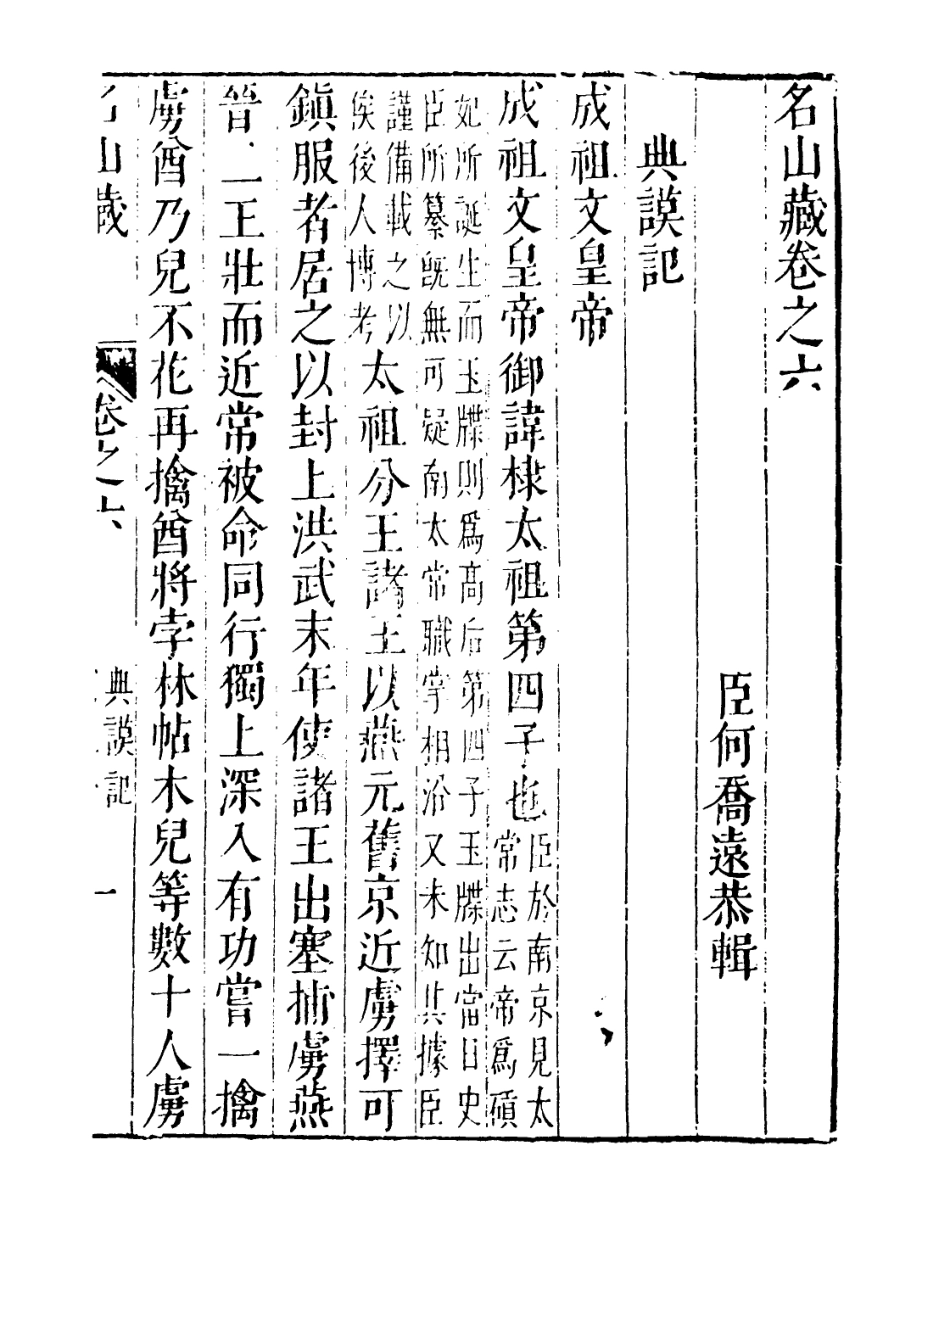 名山藏卷之六
臣何喬遠恭輯
典謨記
成祖文皇帝
成祖文皇帝御諱棣太祖第四子也臣於南京見太常志云帝爲碩
妃所誕生而玉牒則爲高后第四子玉牒出當日史臣所纂旣無可疑南太常職掌相沿又未知其據臣
謹備載之以俟後人博考太祖分王諸王以燕元舊京近虜擇可
鎭服者居之以封上洪武末年使諸王出塞捕虜燕
晉二王壯而近常被命同行獨上深入有功嘗一擒
虜酋乃兒不花再擒酋將孛林帖木兒等數十人虜
名山藏 卷之六 典謨記 一